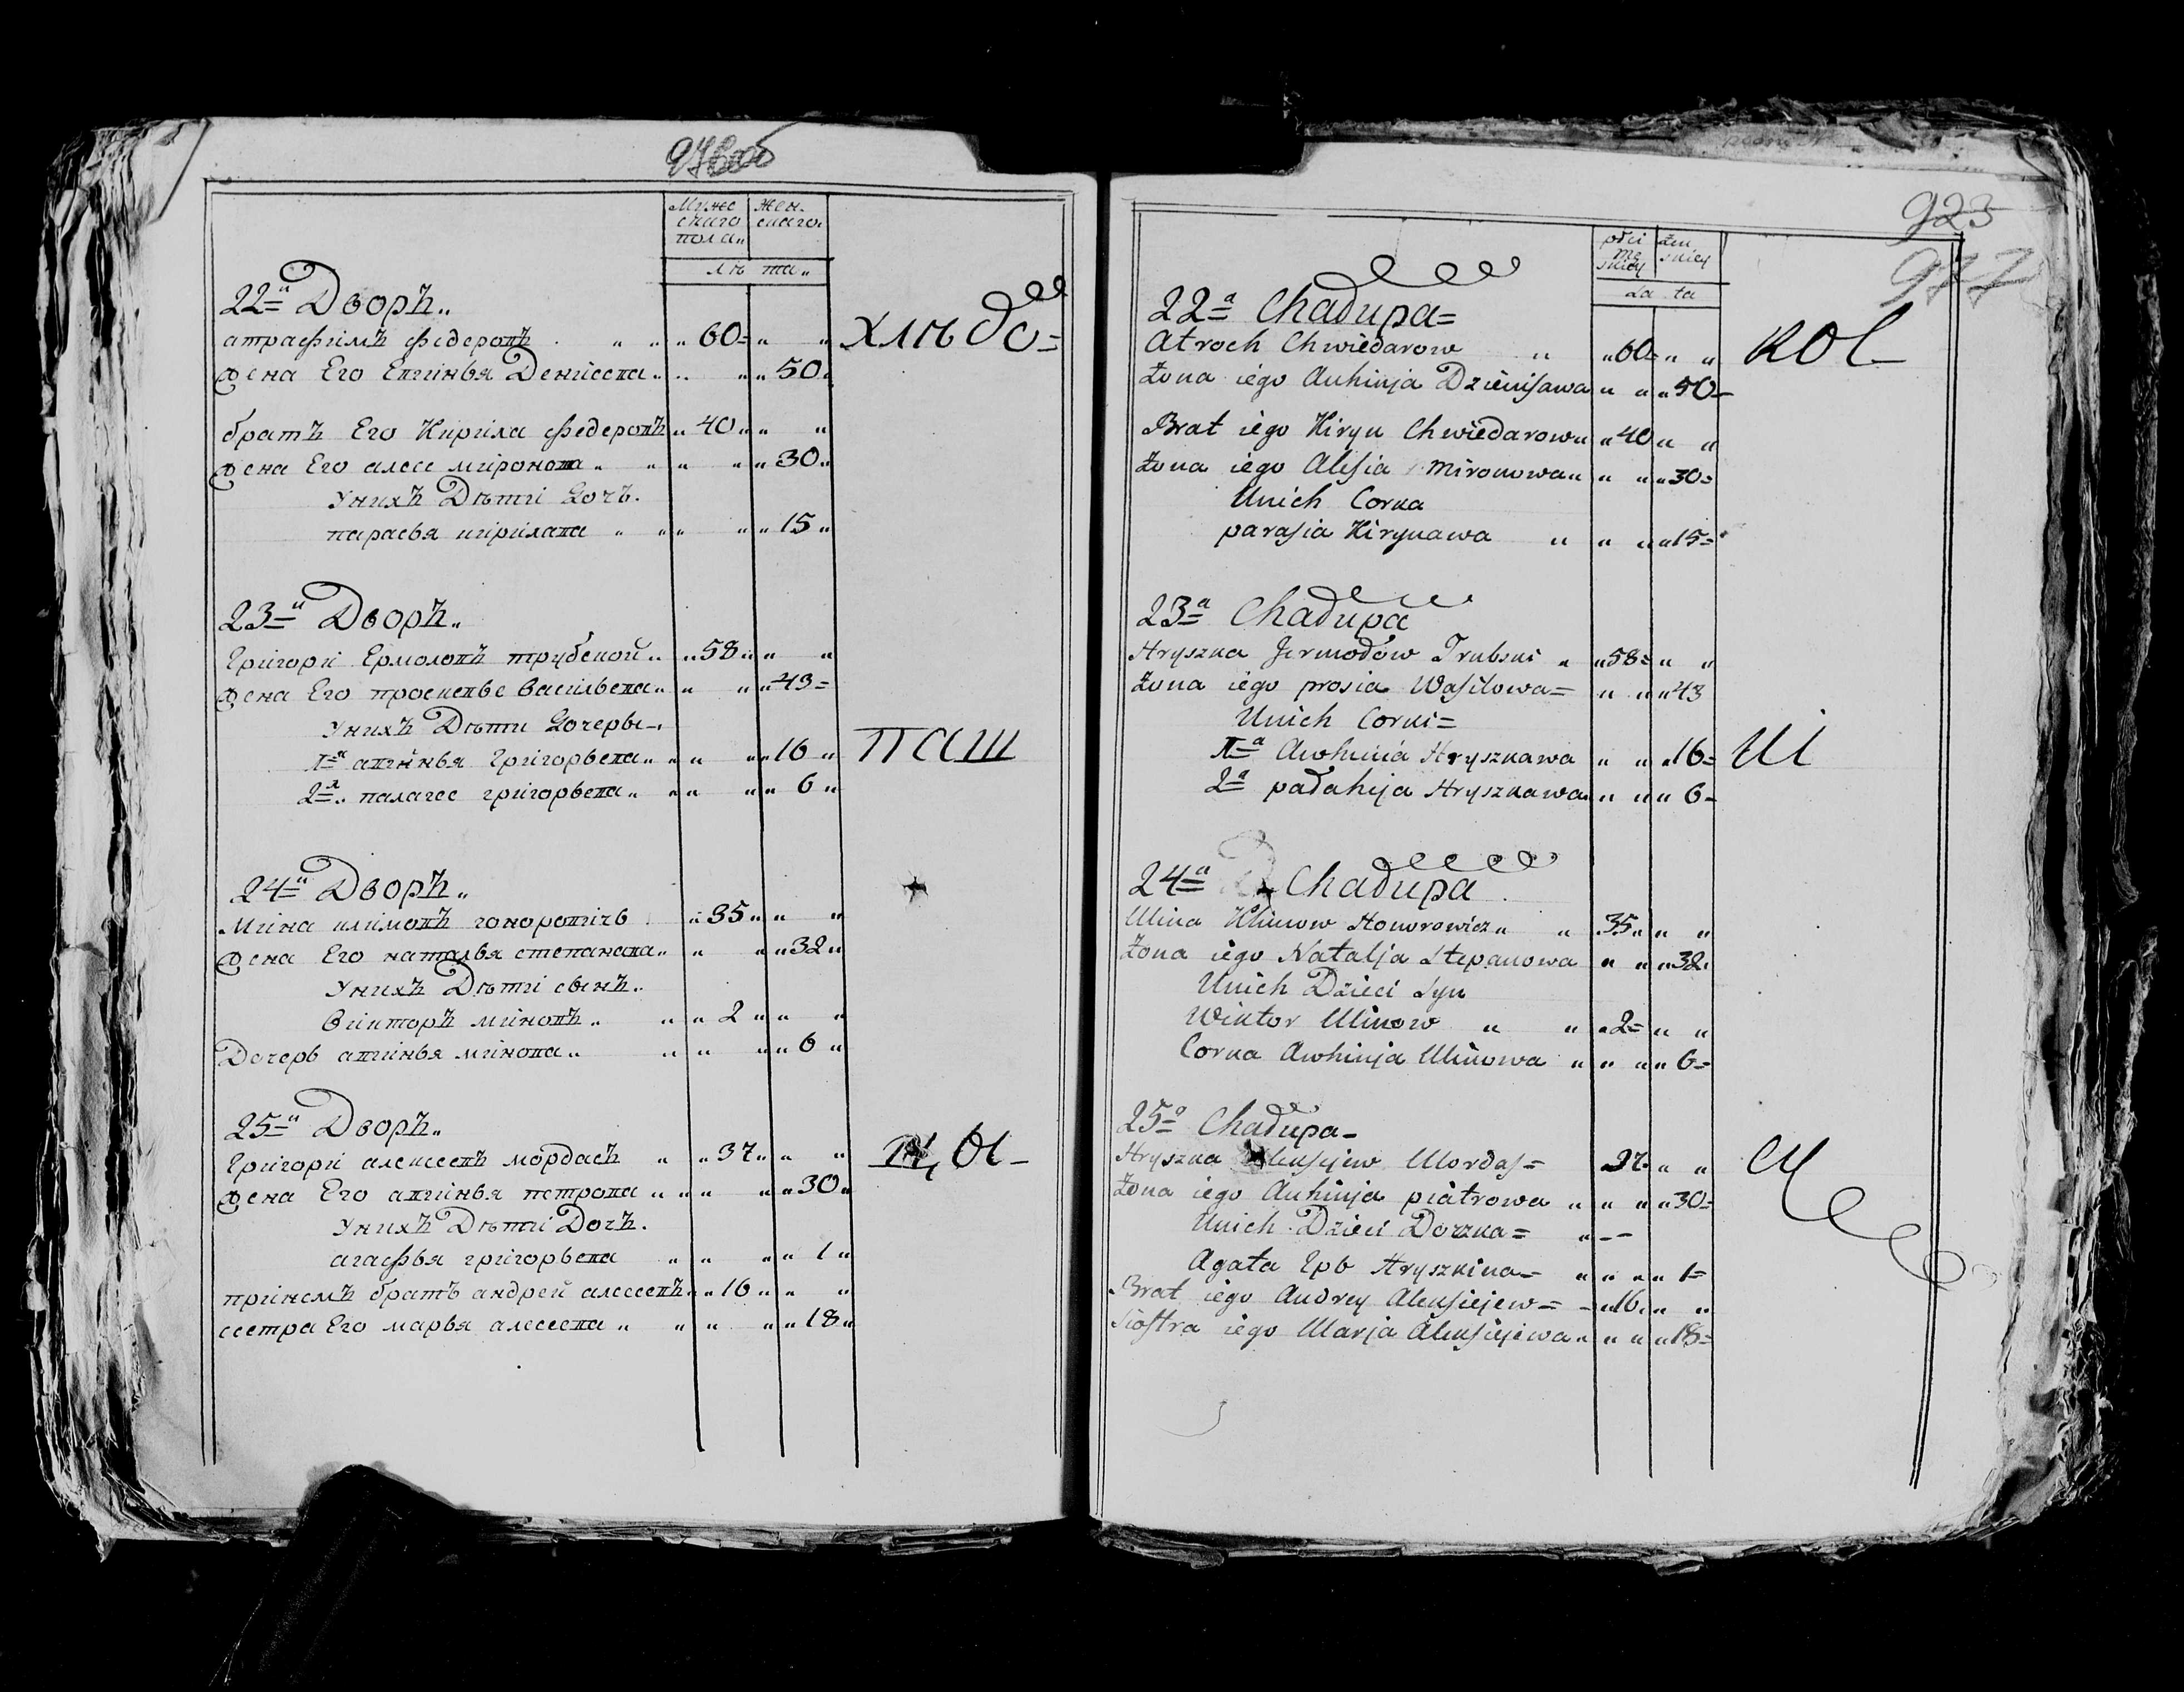 976об
Мужескаго пола„ Жен„скаго„
лѣ та„
22й Дворъ„
атрафимъ федеровъ „ „ „ 60 = „ „ хлѣбо=
жена Его Евгинья Денисева „ „ „ „ 50 „
братъ Его Кирила федеровъ „ 40 „ „ „
жена Его алесе миронова „ „ „ „ „ 30 „
Унихъ Дѣти Дочъ.
парасья кирилава „ „ „ „ „ 15 „
23й Дворъ„
Григори Ермоловъ трубской „ „ 58 „ „ „
жена Его просковье Васильева „ „ „ „ 43 =
Унихъ Дѣти Дочеры
1я авгинья Григорьева „ „ „ „ „ 16 „ паш
2я „ палагее григорьева „ „ „ „ „ 6 „
24й Дворъ„
Мина климовъ гоноровичь „ 35 „ „ „
жена Его наталья степанова „ „ „ „ 32 „
Унихъ Дѣти сынъ „
Викторъ миновъ „ „ „ 2 „ „ „
Дочерь авгинья минова „ „ „ „ „ 6 „
25й Дворъ„
Григори алексеевъ мордасъ „ „ 37 „ „ „
жена Его авгинья петрова „ „ „ „ „ 30 „
Унихъ Дѣти Дочъ.
агафья григорьева „ „ „ „ 1 „
приемъ братъ андрей алесеевъ „ „ 16 „ „ „
сестра Его марья алесеева „ „ „ „ „ 18 „
923
977
płci męskiey żenskiey
La ta
22a Chadupa=
Atroch Chwiedarow „ „ 60 = „ „ кol
Żona iego Auhinja Dzienisawa „ „ „ 50 –
Brat iego Kiryu Chwiedarow „ „ 40 „ „
Żona iego Alesia Mironowa „ „ „ „ 30 =
Unich Corka
parasia Kirynawa „ „ „ „ 15 =
23a Chadupa
Hryszka Jermodow Trubski „ „ 58 = „ „
Żona iego prosia Wasilowa = „ „ „ 43
Unich Corki =
1a Awhinia Hryszkawa „ „ „ 16 =
2a padahija Hryszkawa „ „ „ 6 –
24a Chadupa
Mina Klimow Honorowicz „ „ 35 „ „ „
Żona iego Natalja Stepanowa „ „ „ 32 „
Unich Dzieci Syn
Wiktor Minow „ „ „ 2 = „ „
Corka Awhinja Minowa „ „ „ „ 6 =
25a Chadupa –
Hryszka Aleksiejew Mordas = 37 „ „
Żona iego Auhinja piatrowa „ „ „ „ 30 =
Unich Dzieci Doczka = „ – –
Agata Hryszkina = „ „ „ „ 1 =
Brat iego Andrey Aleksiejew = – „ 16 „ „ „
Siostra iego Marja Aleksiejewa „ „ „ „ 18 =